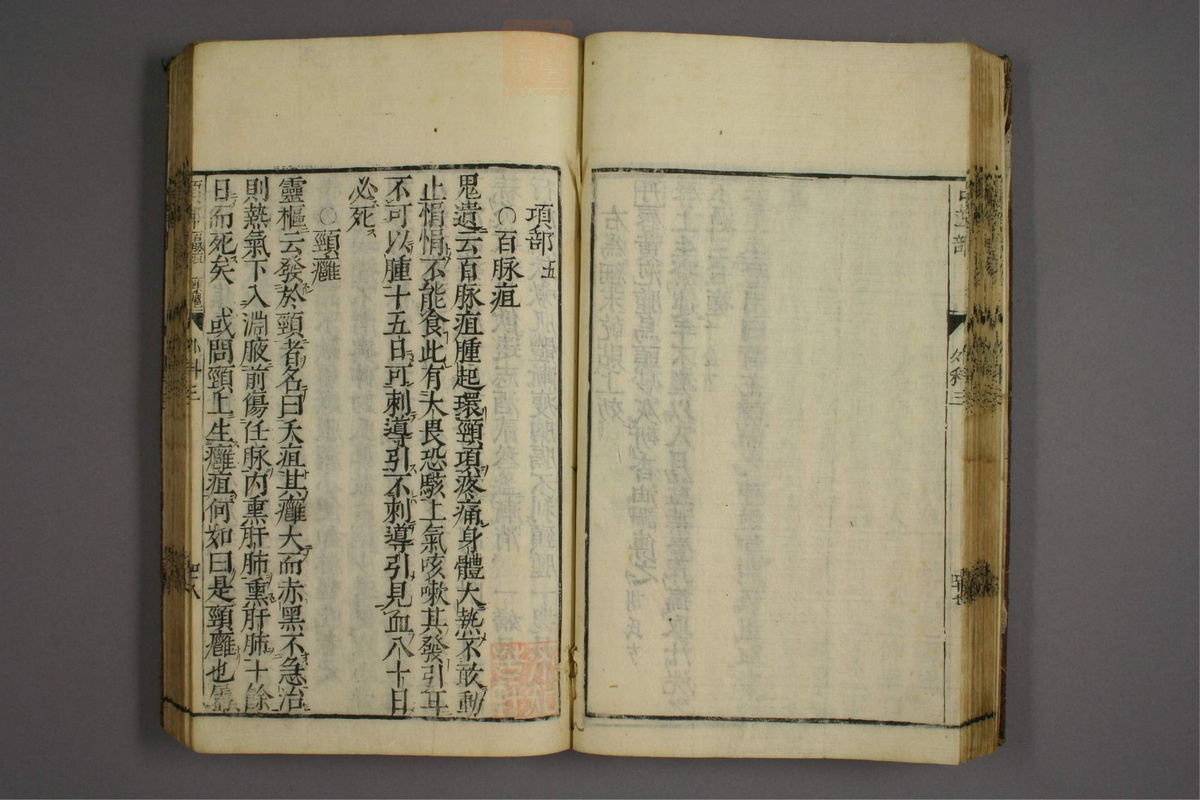 項部 五
〇百脉疽
鬼遺云百脉疽腫起環頸項疼痛身體大熱不敢動
止悁悁不能食此有大畏恐駭上氣咳嗽其發引耳
不可以腫十五日可刺導引不刺導引見血八十日
必死
〇頸癰
靈樞云發於頸者名曰夭疽其癰大而赤黑不急治
則熱氣下入淵腋前傷任脉內熏肝肺熏肝肺十餘
日而死矣 或問頸上生癰疽何如曰是頸癰也屬
外科三
四八
外科三